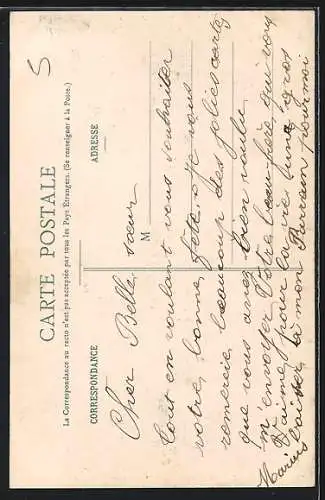 CARTE POSTALE
La Correspondance au recto n'est pas acceptée par tous les Pays Étrangers. (Se renseigner à la Poste.)
CORRESPONDANCE
ADRESSE
M
5
Cher Belle sœur
tout en voulant vous souhaiter
votre bonne fête. Je vous
remercie beaucoup des jolies cartes
que vous avez bien voulue
m'envoyer Votre beau frère qui vous
aime pour la vie
gros
baiser à mon Parrain pour moi
Marius